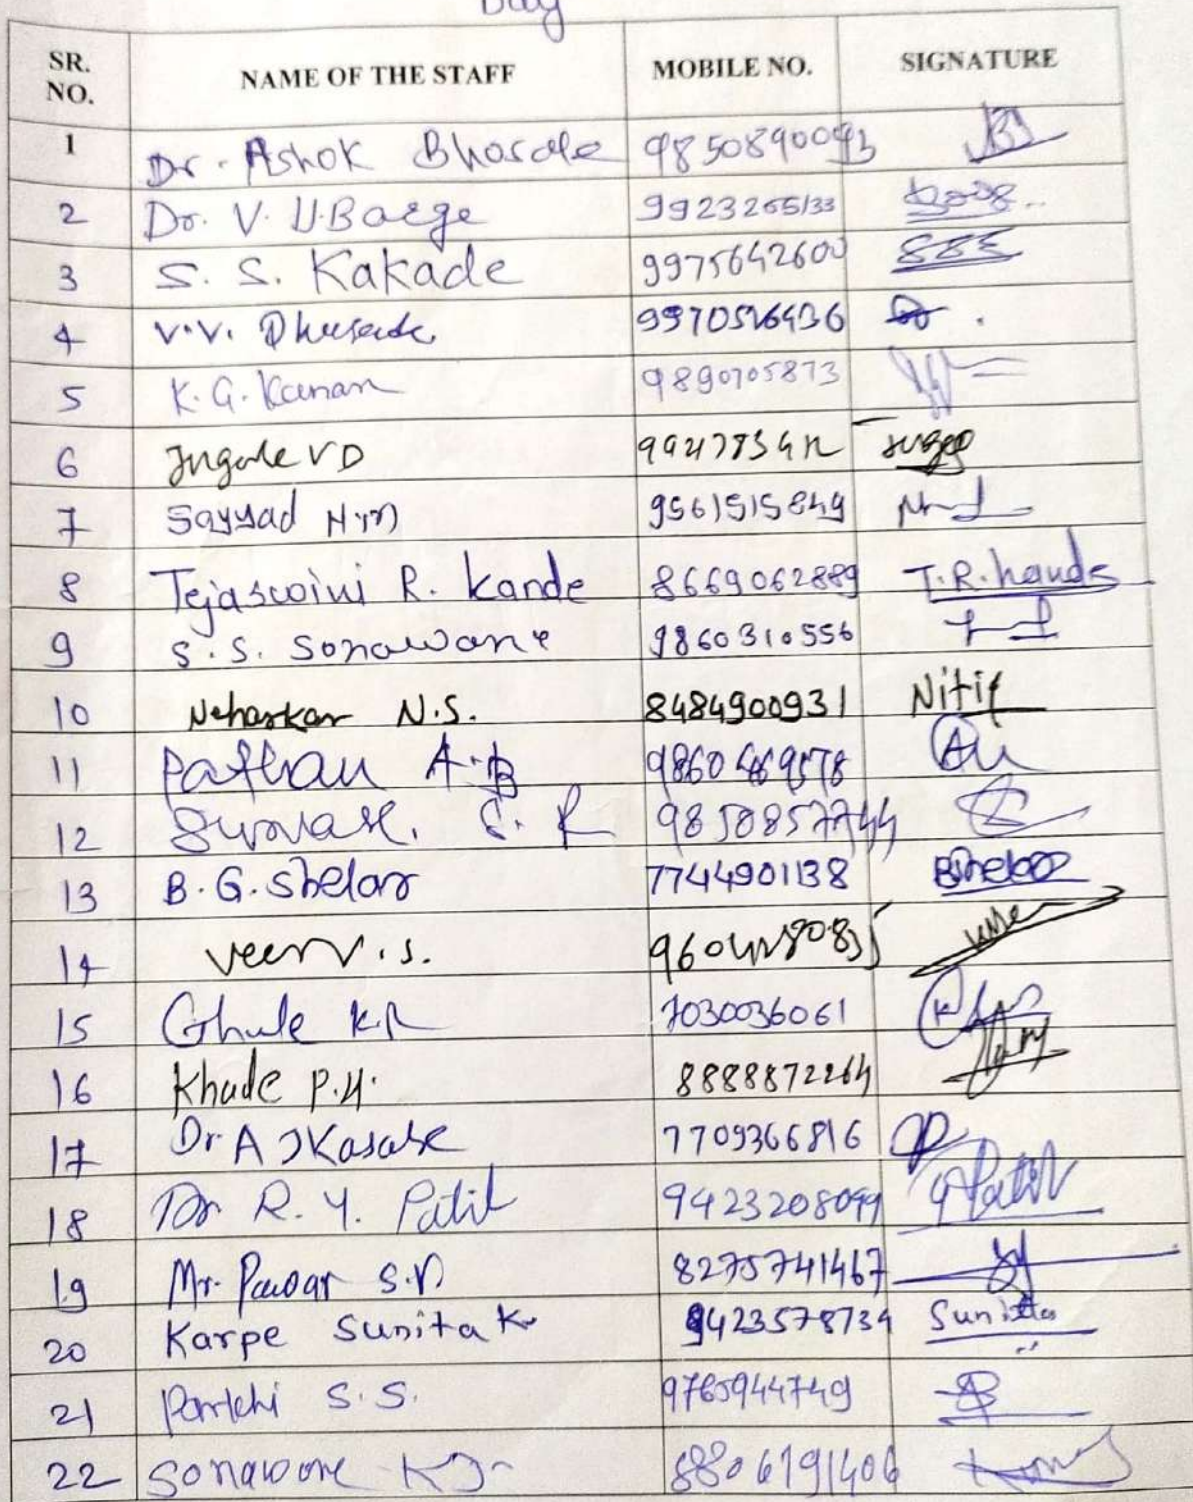 Day
SR. NO. NAME OF THE STAFF MOBILE NO. SIGNATURE
1 Dr. Ashok Bhosale 9850890093
2 Dr. V. U. Barge 9923265133
3 S. S. Kakade 9975642600
4 V.V. 9970516436
5 K. G. Kanan 9890705873
6 Ingale V D
7 Sayyad 9561515849
8 Tejaswini R. Kande 8669062889 T.R.
9 S. S. Sonawane 9860310556
10 Neharkar N.S. 8484900931 Nitin
11 Pathan A. B
12 S. R 9850857744
13 B. G. Shelar 7744901138 BShelar
14 Veer V. S.
15 Ghule K.R 7030036061
16 Khade P.H. 8888872264
17 Dr A J Kasabe 7709366816
18 Dr R. Y. Patil 9423208099 Patil
19 Mr. Pawar S.D 8275741467
20 Karpe Sunita K. 9423578734 Sunitta
21 Parkhi S. S. 9765944749
22 Sonawane 8806191406